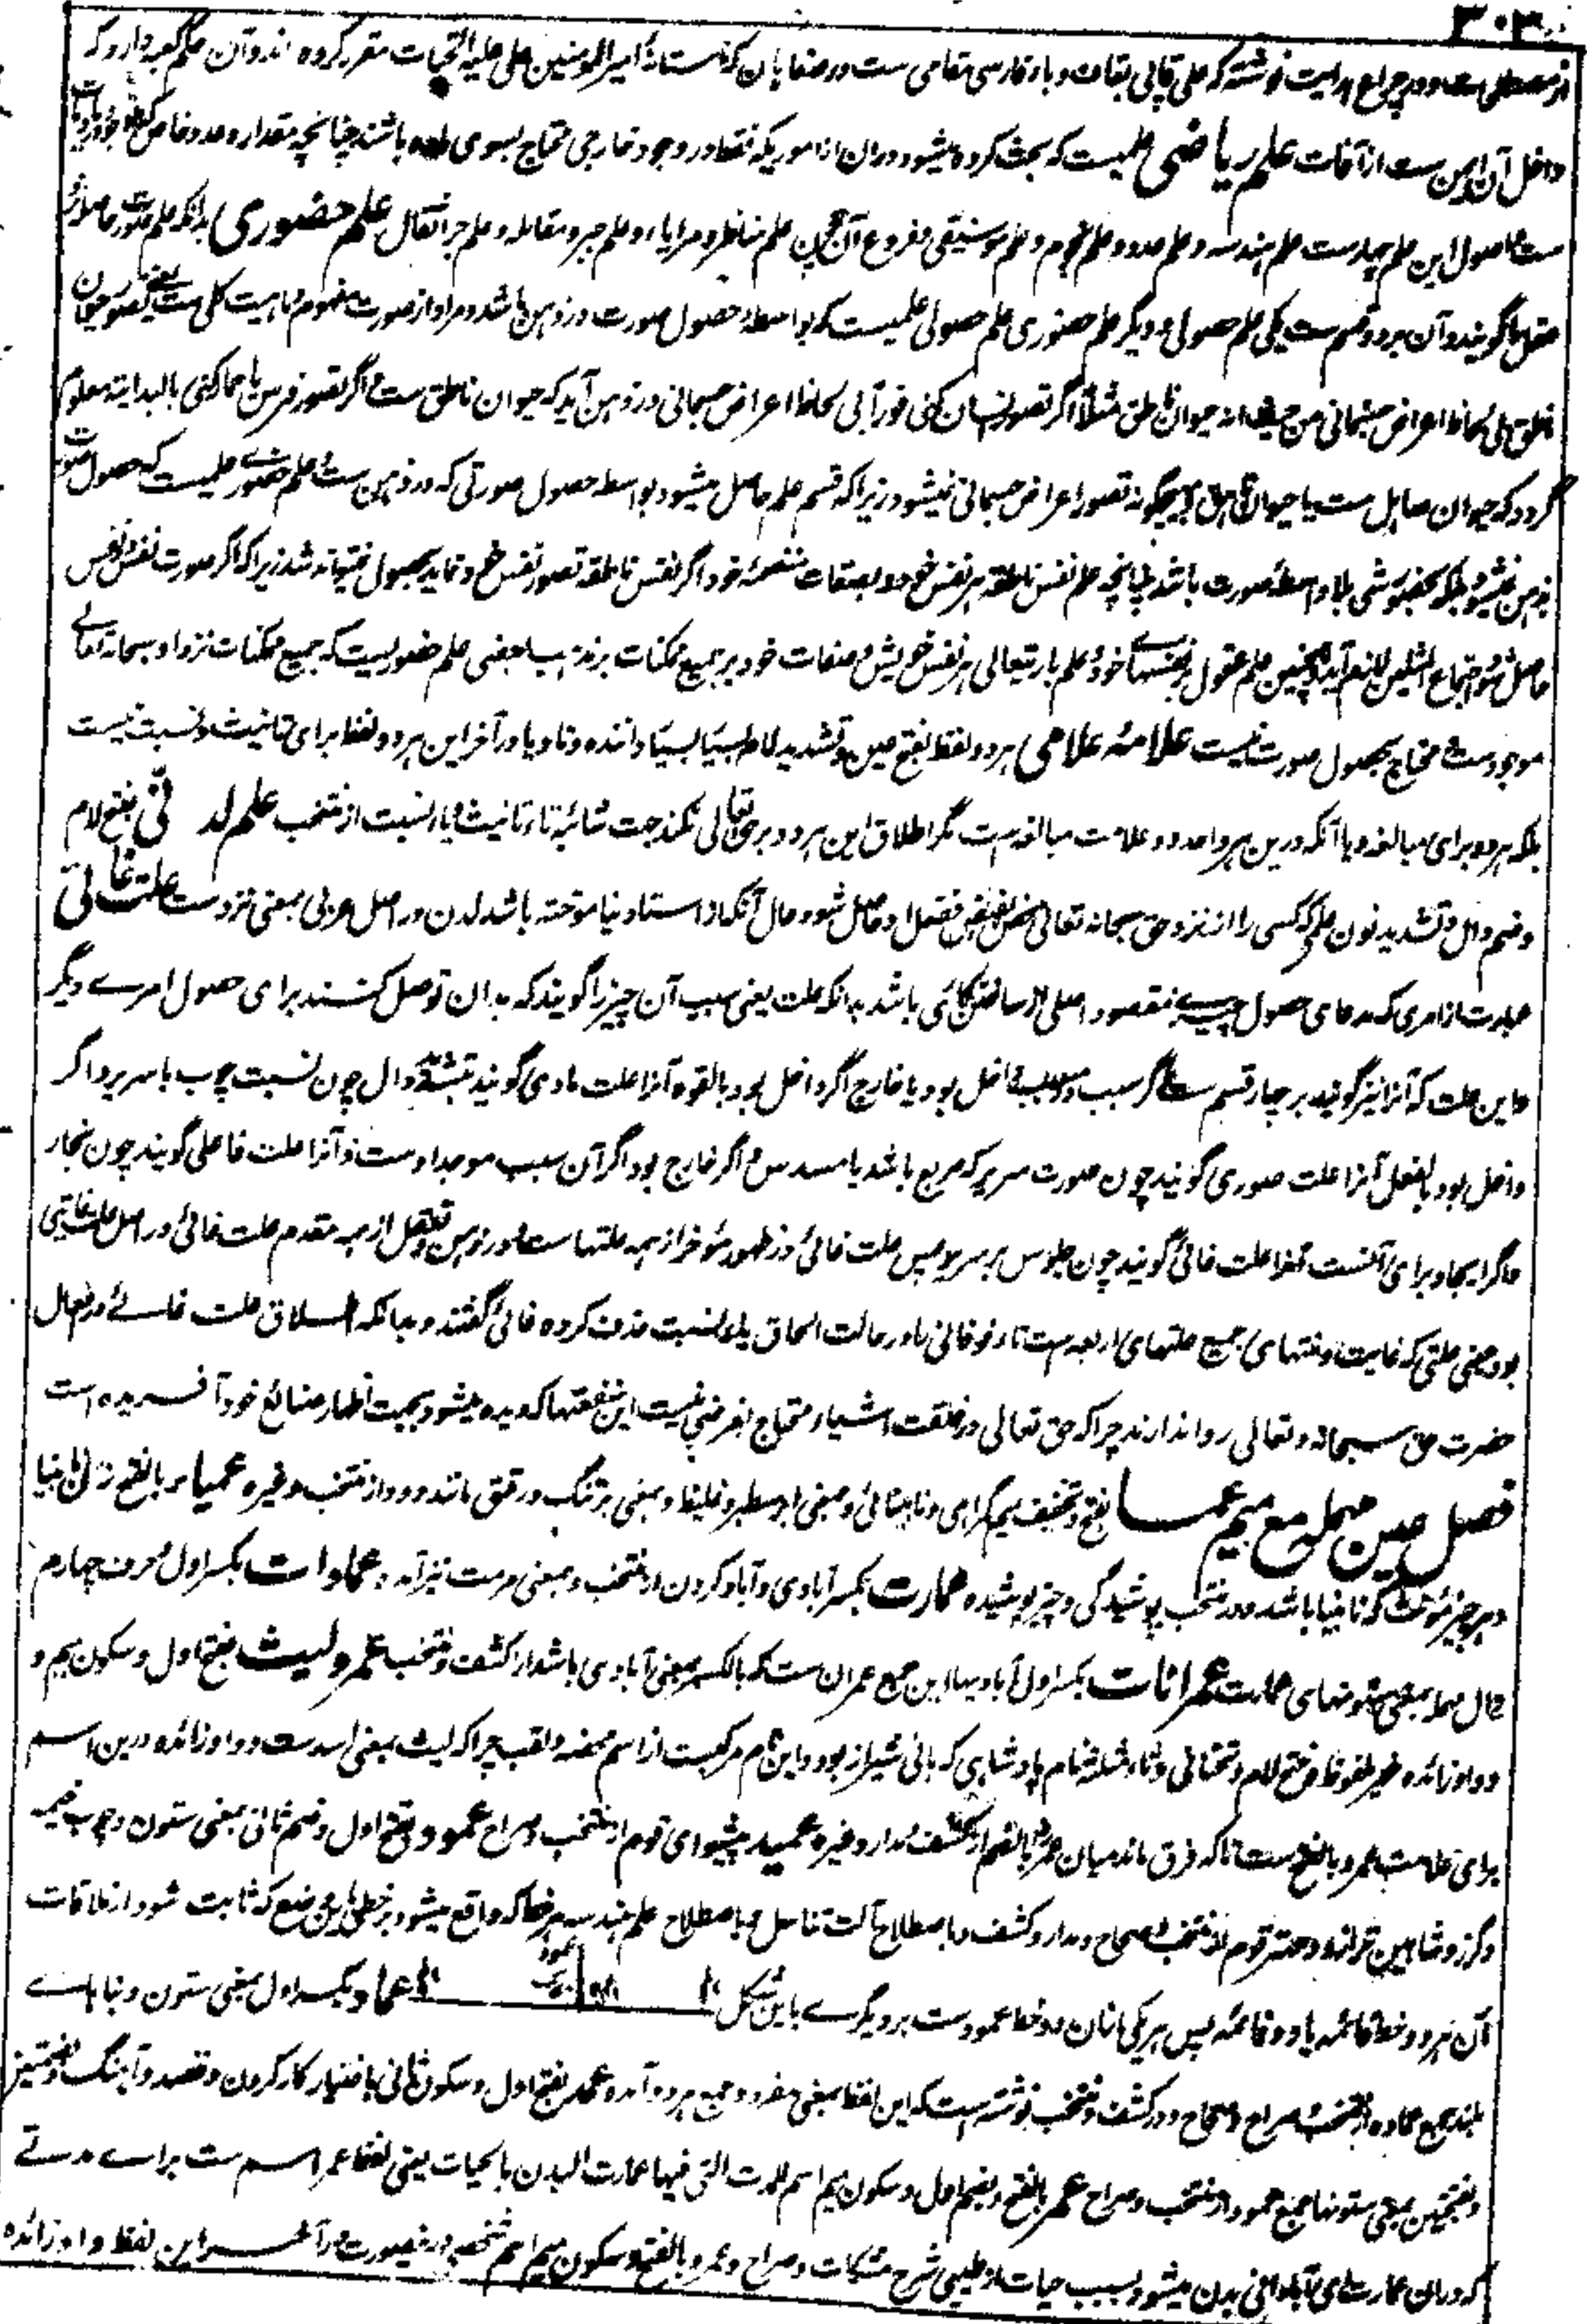 ۳۰۳
از مصطلحات و در چراغ هدایت نوشته که علی قاپی بقاف و باء فارسی مقامی ست در صفاهان که آستانهٔ امیرالمومنین علی علیه التحیات مقرر کرده اند و آن حکم کعبه دارد که
داخل آن ایمن ست از آفات علم ریاضی علمیست که بحث کرده میشود دران از اموریکه فقط در وجود خارجی محتاج بسوی ماده باشند چنانچه مقدار و عدد خاص
ست و اصول این علم چهارست علم هندسه و علم عدد و علم نجوم و علم موسیقی و فروع آن چون علم مناظر و مرایا و علم جبر و مقابله و علم جر اثقال علم حضوری بدانکه علم
عقل را گویند و آن بر دو قسم ست یکی علم حصولی و دیگر علم حضوری علم حصولی علمیست که بواسطهٔ حصول صورت در ذهن باشد و مراد از صورت مفهوم ماهیت کلی ست
ناطق بی لحاظ اعراض جسمانی من حیث انه حیوان ناطق مثلاً اگر تصور انسان کنی فوراً بی لحاظ اعراض جسمانی در ذهن آید که حیوان ناطق ست و اگر تصور فرس یا حمار کنی بالبداهة معلوم
گردد که حیوان صاهل ست و یا حیوان ناهق و هیچگونه تصور اعراض جسمانی نمیشود زیرا که قسم علم حاصل میشود بواسطهٔ حصول صورتی که در ذهن ست و علم حضوری علمیست که حصول صورت
بذهن نمیشود بلکه بحضور شی بلا واسطهٔ صورت باشد چنانچه علم نفس ناطقه بر نفس خود و بصفات منضمهٔ خود اگر نفس ناطقه تصور نفس خود نماید بحصول نمیتواند شد زیرا که اگر صورت نفس در نفس
حاصل شود اجتماع المثلین لازم آید و همچنین علم عقول بر نفسهای خود و علم باریتعالی بر نفس خویش و صفات خود بر جمیع ممکنات بمذهب بعضی علم حضوریست که جمیع ممکنات نزد او سبحانه تعالی
موجودست و محتاج بحصول صورت نیست علامه علامی هر دو لفظ بفتح عین و تشدید لام بسیار بسیار داننده و تا و یا در آخر این هر دو لفظ برای تانیث و نسبت نیست
بلکه هر دو برای مبالغه و با آنکه درین هر واحد دو علامت مبالغه ست مگر اطلاق این هر دو بر حق تعالی نکنند جهت شائبهٔ تاء تانیث و یاء نسبت از منتخب علم لدنی بفتح لام
و ضم دال و تشدید نون علمی که کسی را از نزد حق سبحانه تعالی محض بفیض فضل او حاصل شود و حال آنکه از استاد نیاموخته باشد لدن در اصل عربی بمعنی نزدست علت غائی
عبارت از امری که مدعای حصول چیزی و مقصود اصلی از ساختن کاری باشد بدانکه علت یعنی سبب آن چیز را گویند که بدان توصل کنند برای حصول امرے دیگر
و این علت که آنرا نیز گویند بر چهار قسم ست اگر سبب در مسبب داخل بود یا خارج اگر داخل بود بالقوه آنرا علت مادی گویند بتشدید دال چون نسبت چوب با سریر و اگر
داخل بود بالفعل آنرا علت صوری گویند چون صورت سریر که مربع باشد یا مسدس و اگر خارج بود اگر آن سبب موجد اوست و آنرا علت فاعلی گویند چون نجار
و اگر ایجاد برای آنست آنرا علت غائی گویند چون جلوس بر سریر پس علت غائی در ظهور مؤخر از همه علتهاست و در ذهن و تعقل از همه مقدم علت غائی در اصل علت غایتی
بود یعنی علتی که غایت و منتهای جمیع علتهای اربعه ست تاء فوقانی را در حالت الحاق یاء نسبت حذف کرده غائی گفتند و بدانکه اطلاق علت غائی در افعال
حضرت حق سبحانه و تعالی روا ندارند چرا که حق تعالی در خلقت اشیاء محتاج بغرضی نیست این منفعتها که دیده میشود بجهت اظهار صنائع خود آفریده است
فصل عین مهمله مع میم عما بفتح و تخفیف میم گمراهی و نابینائی و بمعنی ابر سطبر و غلیظ و بمعنی ابر تنک و رقیق مانند دود از منتخب و غیره عمیاء بالفتح زن نابینا
و هر چیز مؤنث که نابینا باشد و در منتخب پوشیدگی و چیز پوشیده عمارت بکسر آبادی و آباد کردن از منتخب و بمعنی مرمت نیز آمده عمادات بکسر اول و حرف چهارم
دال مهمله بمعنی ستونهای عمارت عمرانات بکسر اول آبادیها این جمع عمران ست که بالکسر بمعنی آبادی باشد از کشف و منتخب عمرولیث بفتح اول و سکون میم و
و واو زائده غیر ملفوظ و فتح لام و تحتانی و ثاء مثلثه نام پادشاهی که بانی شیراز بود و این نام مرکبست از اسم محضه و لقب چرا که لیث بمعنی اسدست و واو زائده درین اسم
برای علامت عمرو بالفتح ست تا که فرق ماند میان عمر بالضم از کشف و مدار و غیره عمید پیشوای قوم از منتخب و صراح عمود بفتح اول و ضم ثانی بمعنی ستون و چوب خیمه
و گرز و شاهین ترازو و مهتر قوم از منتخب و صحاح و مدار و کشف و باصطلاح آلت تناسل و باصطلاح علم هندسه هر خط که واقع میشود بر خطی باین وضع که ثابت شود از ملاقات
آن هر دو خط قائمه یا دو قائمه پس هر یکی ازان دو خط عمودست بر دیگرے باین شکل عمود عماد بکسر اول بمعنی ستون و بناهاے
بلند جمع عماده از منتخب و صراح و صحاح و در کشف و منتخب نوشته ست که این لفظ بمعنی مفرد و جمع هر دو آمده و عمد بفتح اول و سکون ثانی باختیار کار کردن و قصد و آهنگ و بفتحتین
و بضمتین بمعنی ستونها جمع عمود از منتخب و صراح عمر بالفتح و بضم اول و سکون میم اسم لمدت التی فیها عمارت البدن بالحیات یعنی لفظ عمر اسم ست براے مدتے
که دران عمارت و آبادانی بدن میشود بسبب حیات از طیبی شرح مشکات و صراح و عمرو بالفتح و سکون میم اسم شخصی درینصورت در آخر این لفظ واو زائده